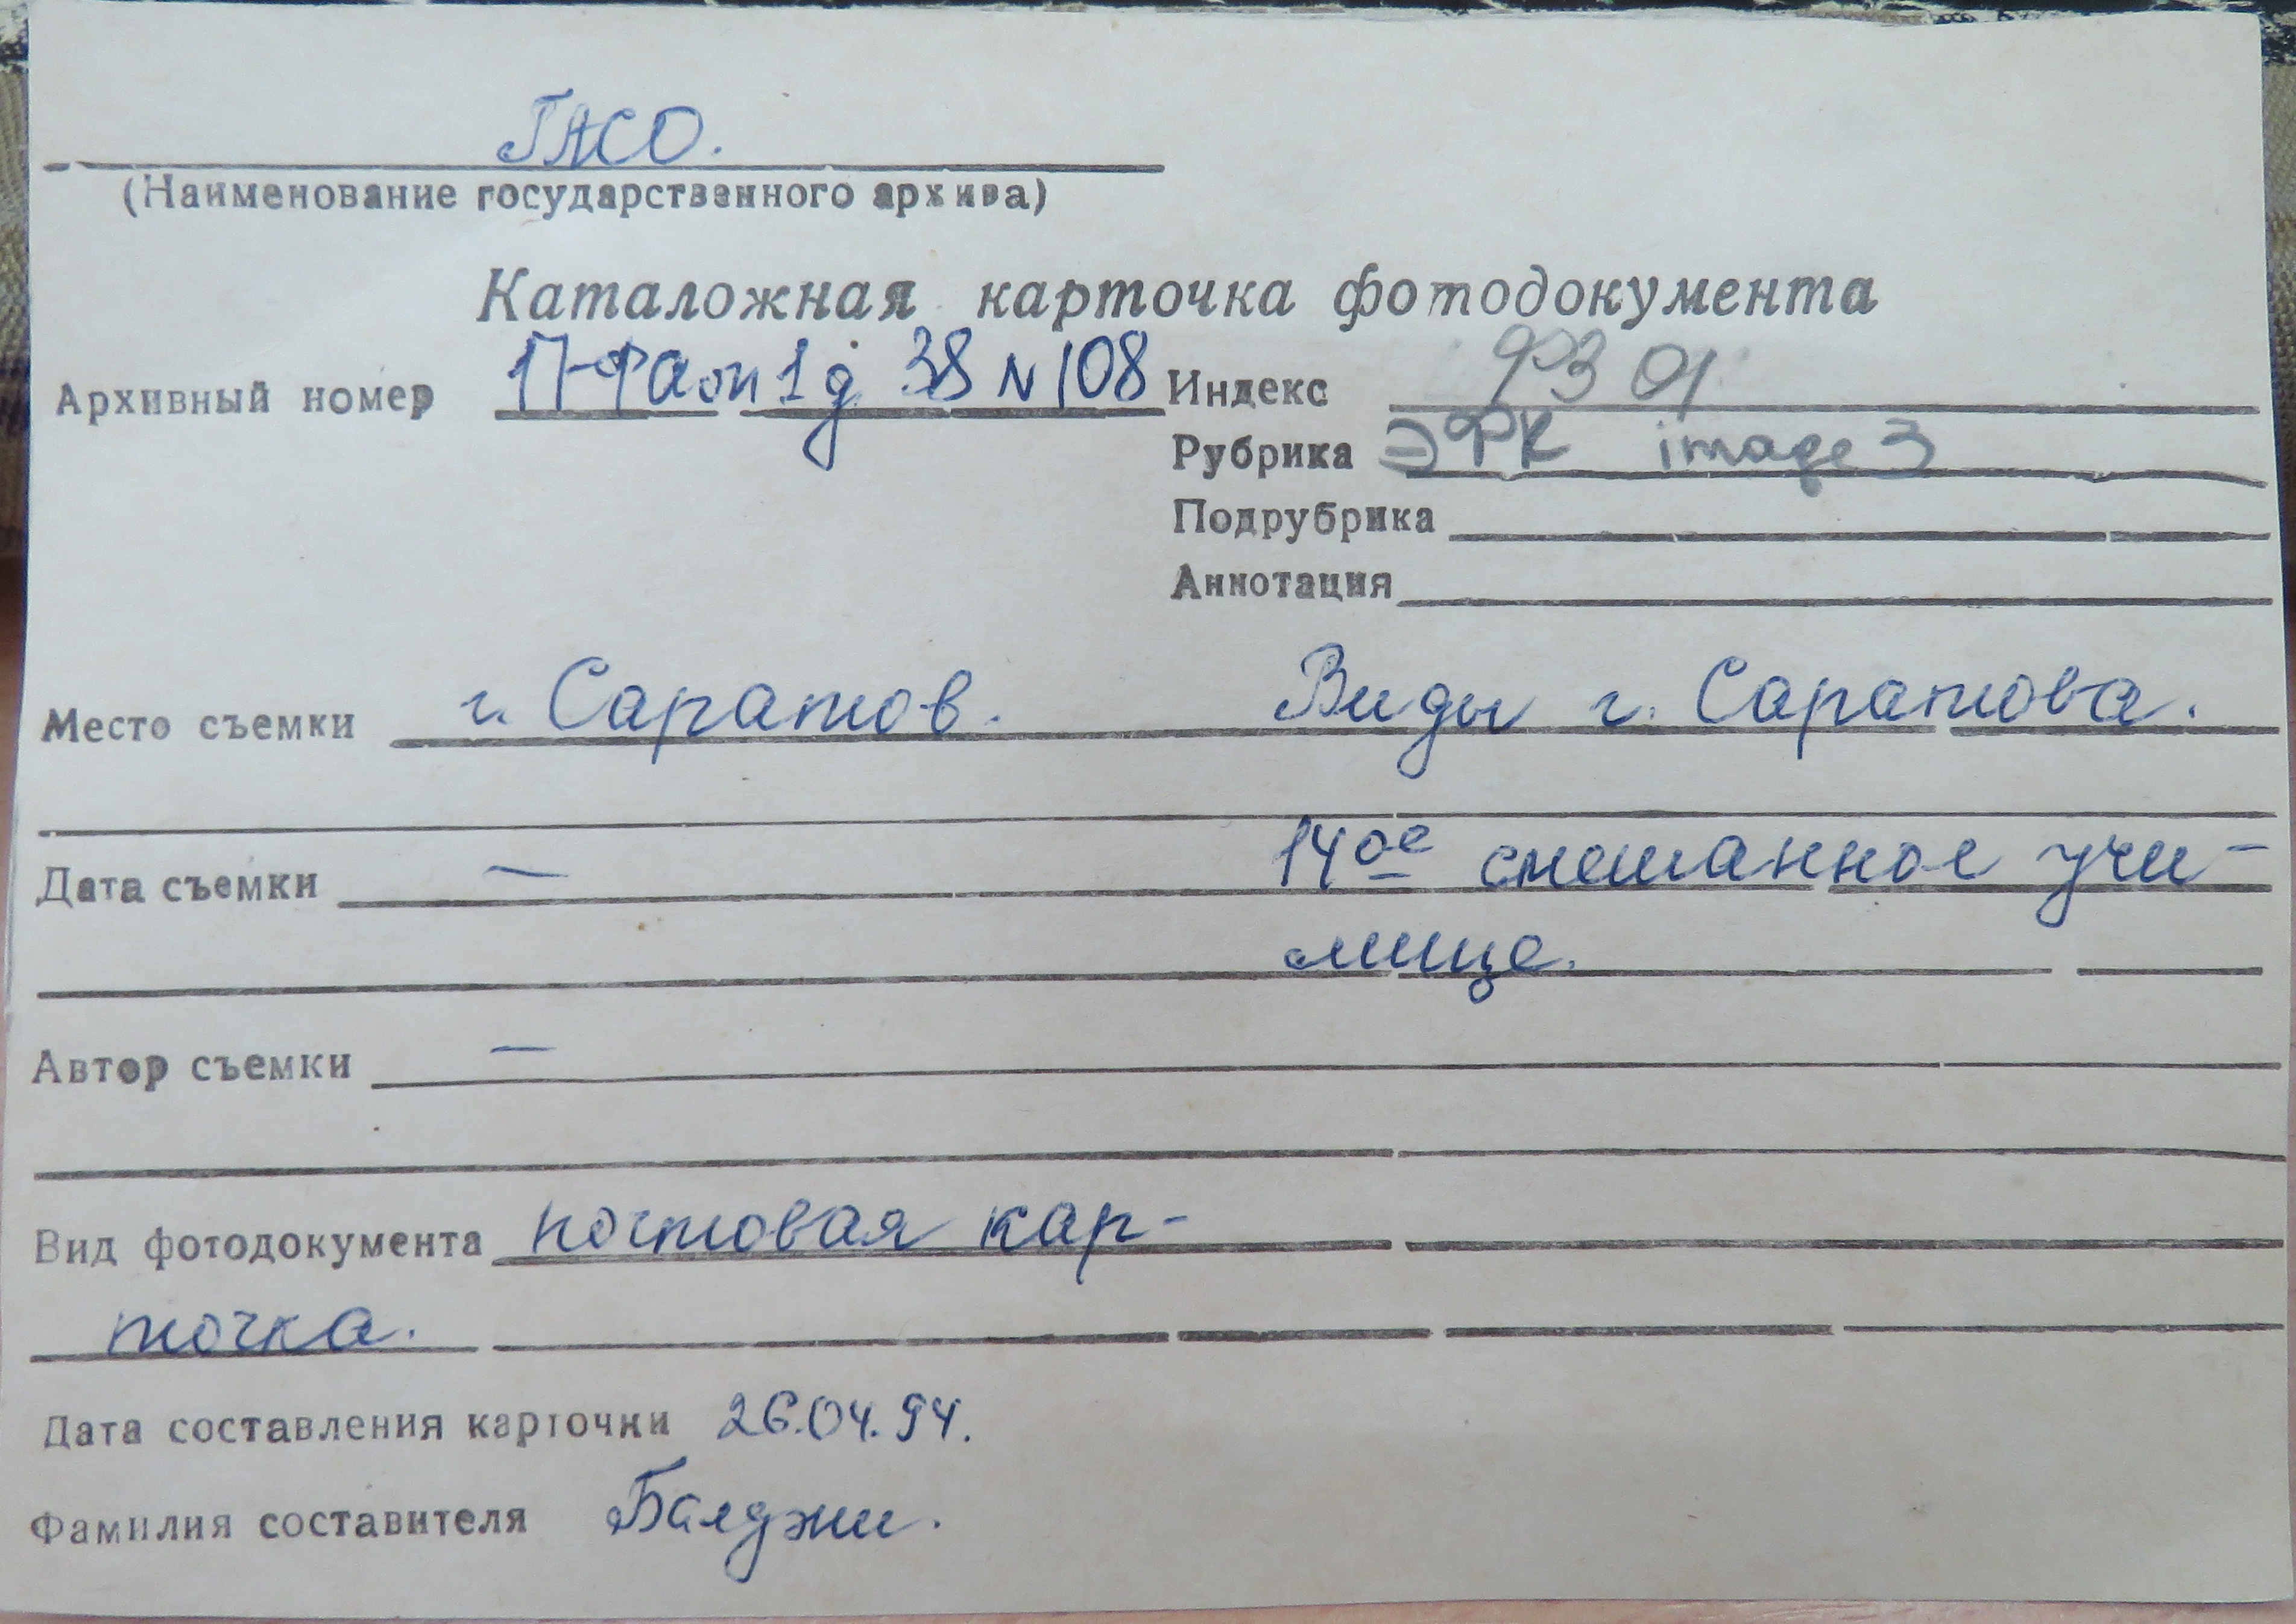 ГАСО.
(Наименование государственного архива)
Каталожная карточка фотодокумента
Архивный номер П-Фа оп 1 д 38 N 108 Индекс ФЗ 01
Рубрика ЭФК image 3
Подрубрика
Аннотация
Место съемки г. Саратов. Виды г. Саратова.
Дата съемки — 14ое смешанное учи-
лище.
Автор съемки —
Вид фотодокумента почтовая кар-
точка.
Дата составления карточки 26.04.94.
Фамилия составителя Балджи.